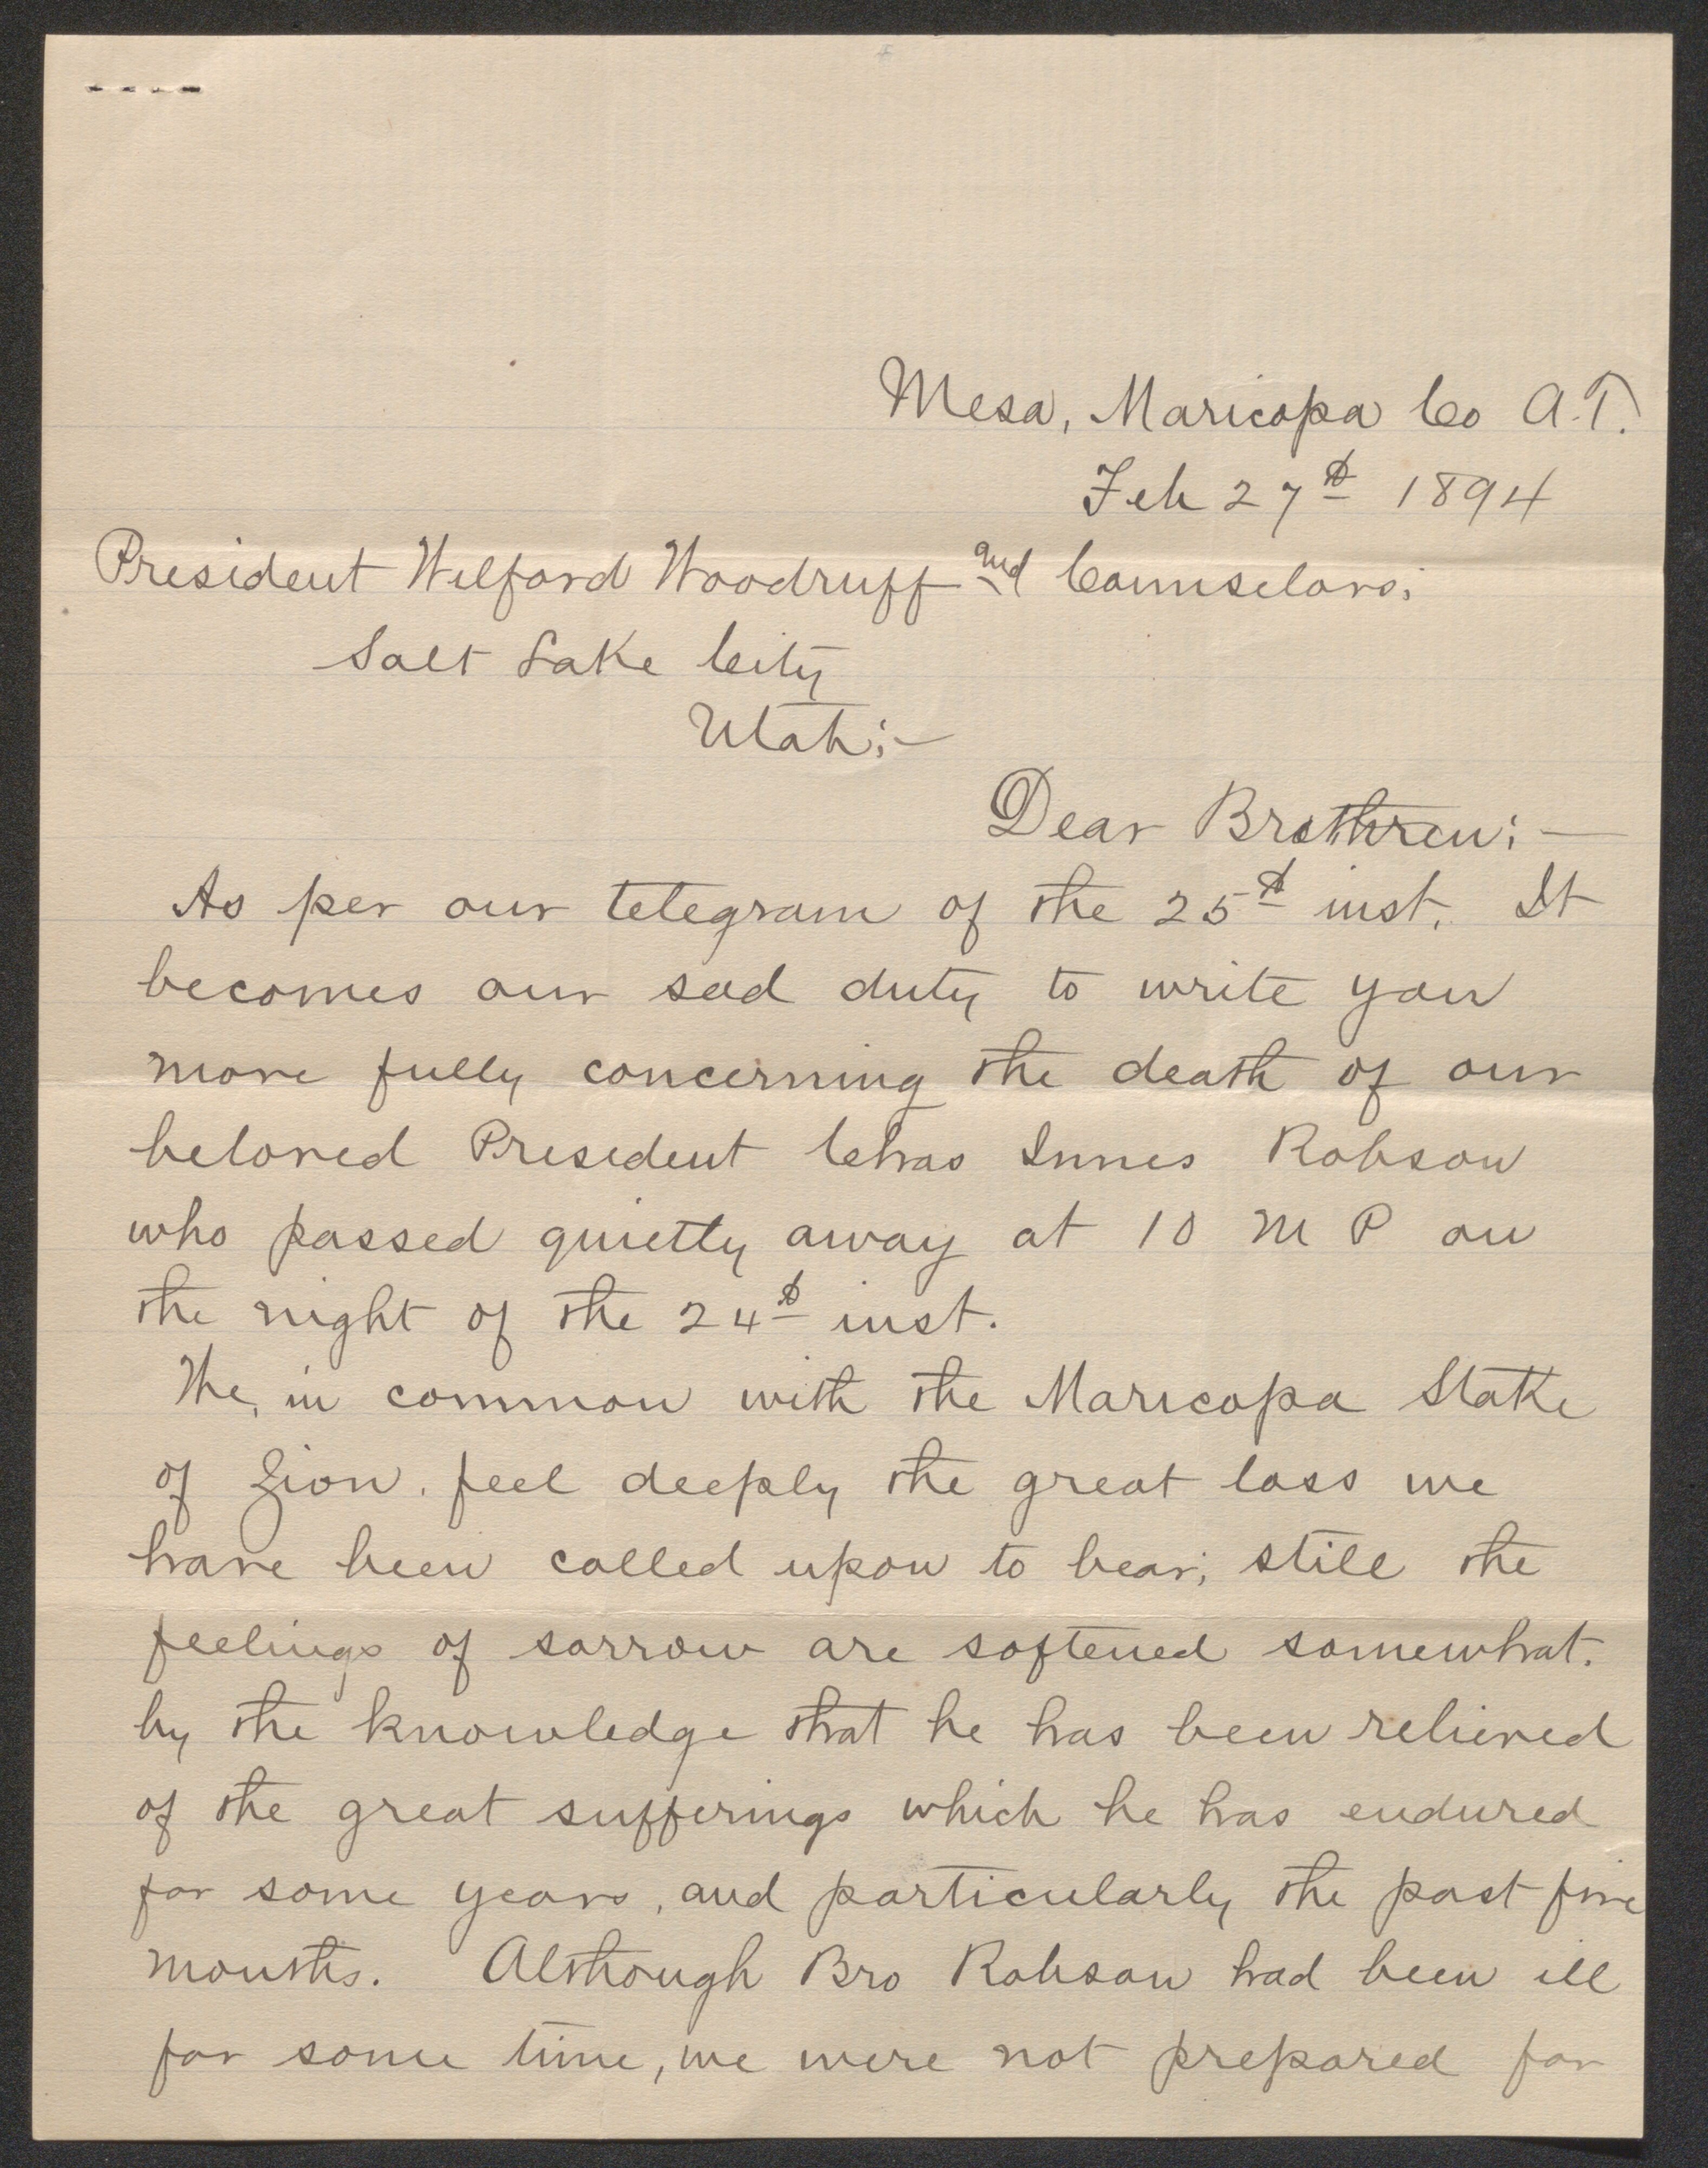 Mesa, Maricopa Co A.T.
Feb 27th 1894
President Wilford Woodruff and Counselors;
Salt Lake City
Utah;—
Dear Brethren;—
As per our telegram of the 25th inst. It
becomes our sad duty to write you
more fully concerning the death of our
beloved President Chas Innes Robson
who passed quietly away at 10 M P on
the night of the 24th inst.
We, in common with the Maricopa Stake
of Zion. feel deeply the great loss we
have been called upon to bear; still the
feelings of sorrow are softened somewhat.
by the knowledge that he has been relieved
of the great sufferings which he has endured
for some years, and particularly the past five
months. Although Bro Robson had been ill
for some time, we were not prepared for